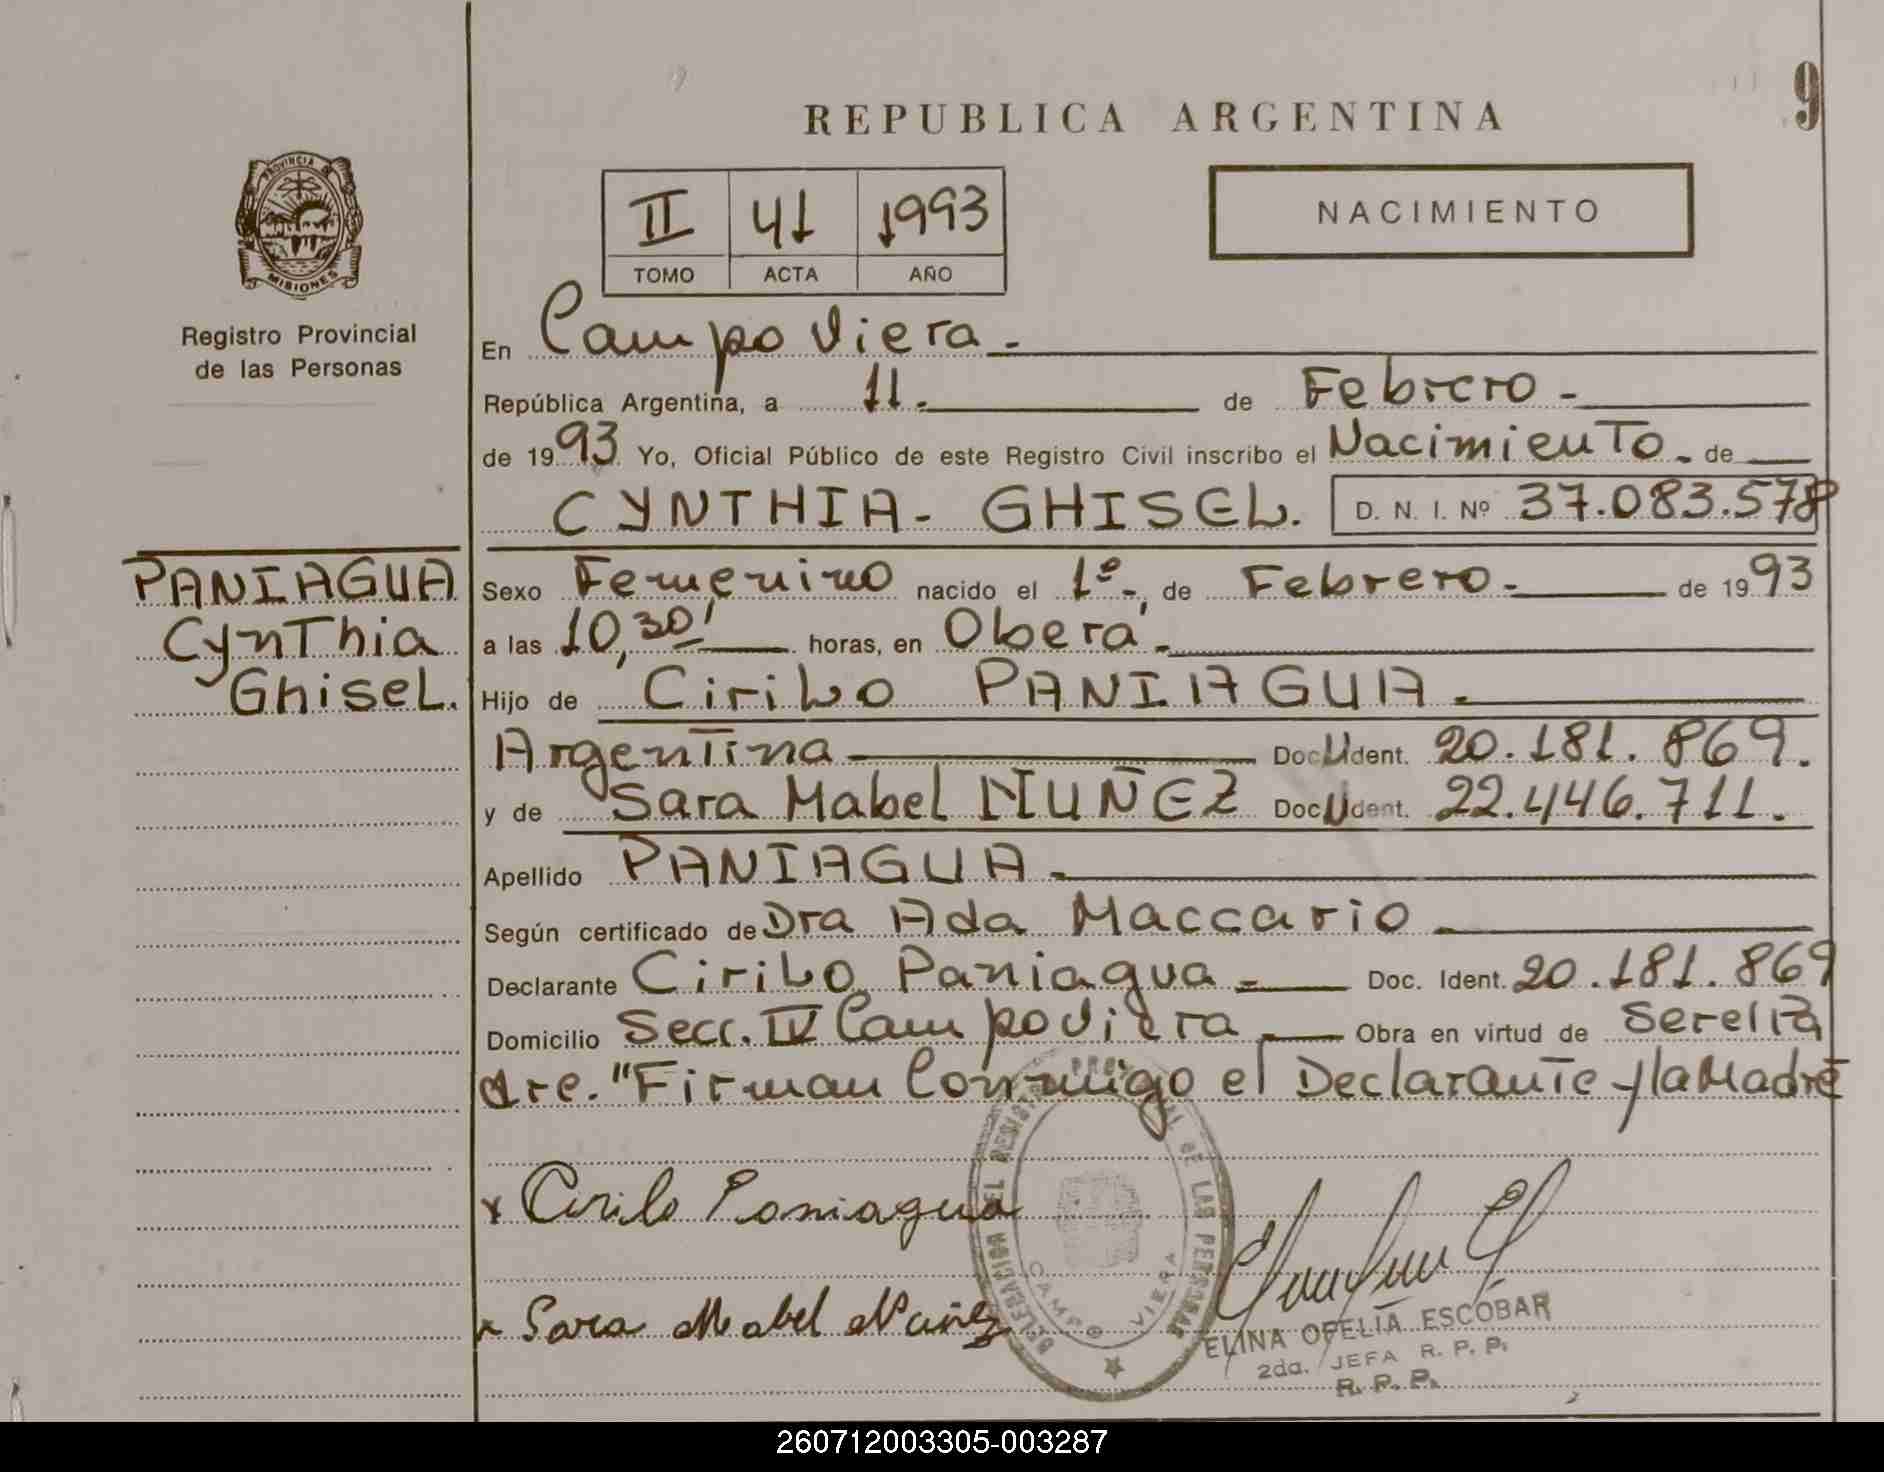 9
REPUBLICA ARGENTINA
II 41 1993
TOMO ACTA AÑO
NACIMIENTO
PROVINCIA DE
MISIONES
Registro Provincial
de las Personas
En Campo Viera.-
República Argentina, a 11.- de Febrero-
de 1993 Yo, Oficial Público de este Registro Civil inscribo el Nacimiento- de
CYNTHIA- GHISEL. D. N. I. Nº 37.083.578
PANIAGUA
Cynthia
Ghisel.
Sexo Femenino nacido el 1º-, de Febrero- de 1993
a las 10,30' horas, en Oberá-
Hijo de Cirilo PANIAGUA.
Argentina Doc U Ident. 20.181.869.
y de Sara Mabel NUÑEZ Doc U dent. 22.446.711.
Apellido PANIAGUA.
Según certificado de Dra Ada Maccario
Declarante Cirilo Paniagua- Doc. Ident. 20.181.869
Domicilio Secc. IV Campo Viera Obra en virtud de
"Firman Conmigo el Declarante y la Madre
Cirilo Paniagua
Sara Mabel Nuñez
DELEGACION DEL REGISTRO PROVINCIAL DE LAS PERSONAS
CAMPO VIERA
ELINA OFELIA ESCOBAR
2da. JEFA R. P. P.
R. P. P.
260712003305-003287